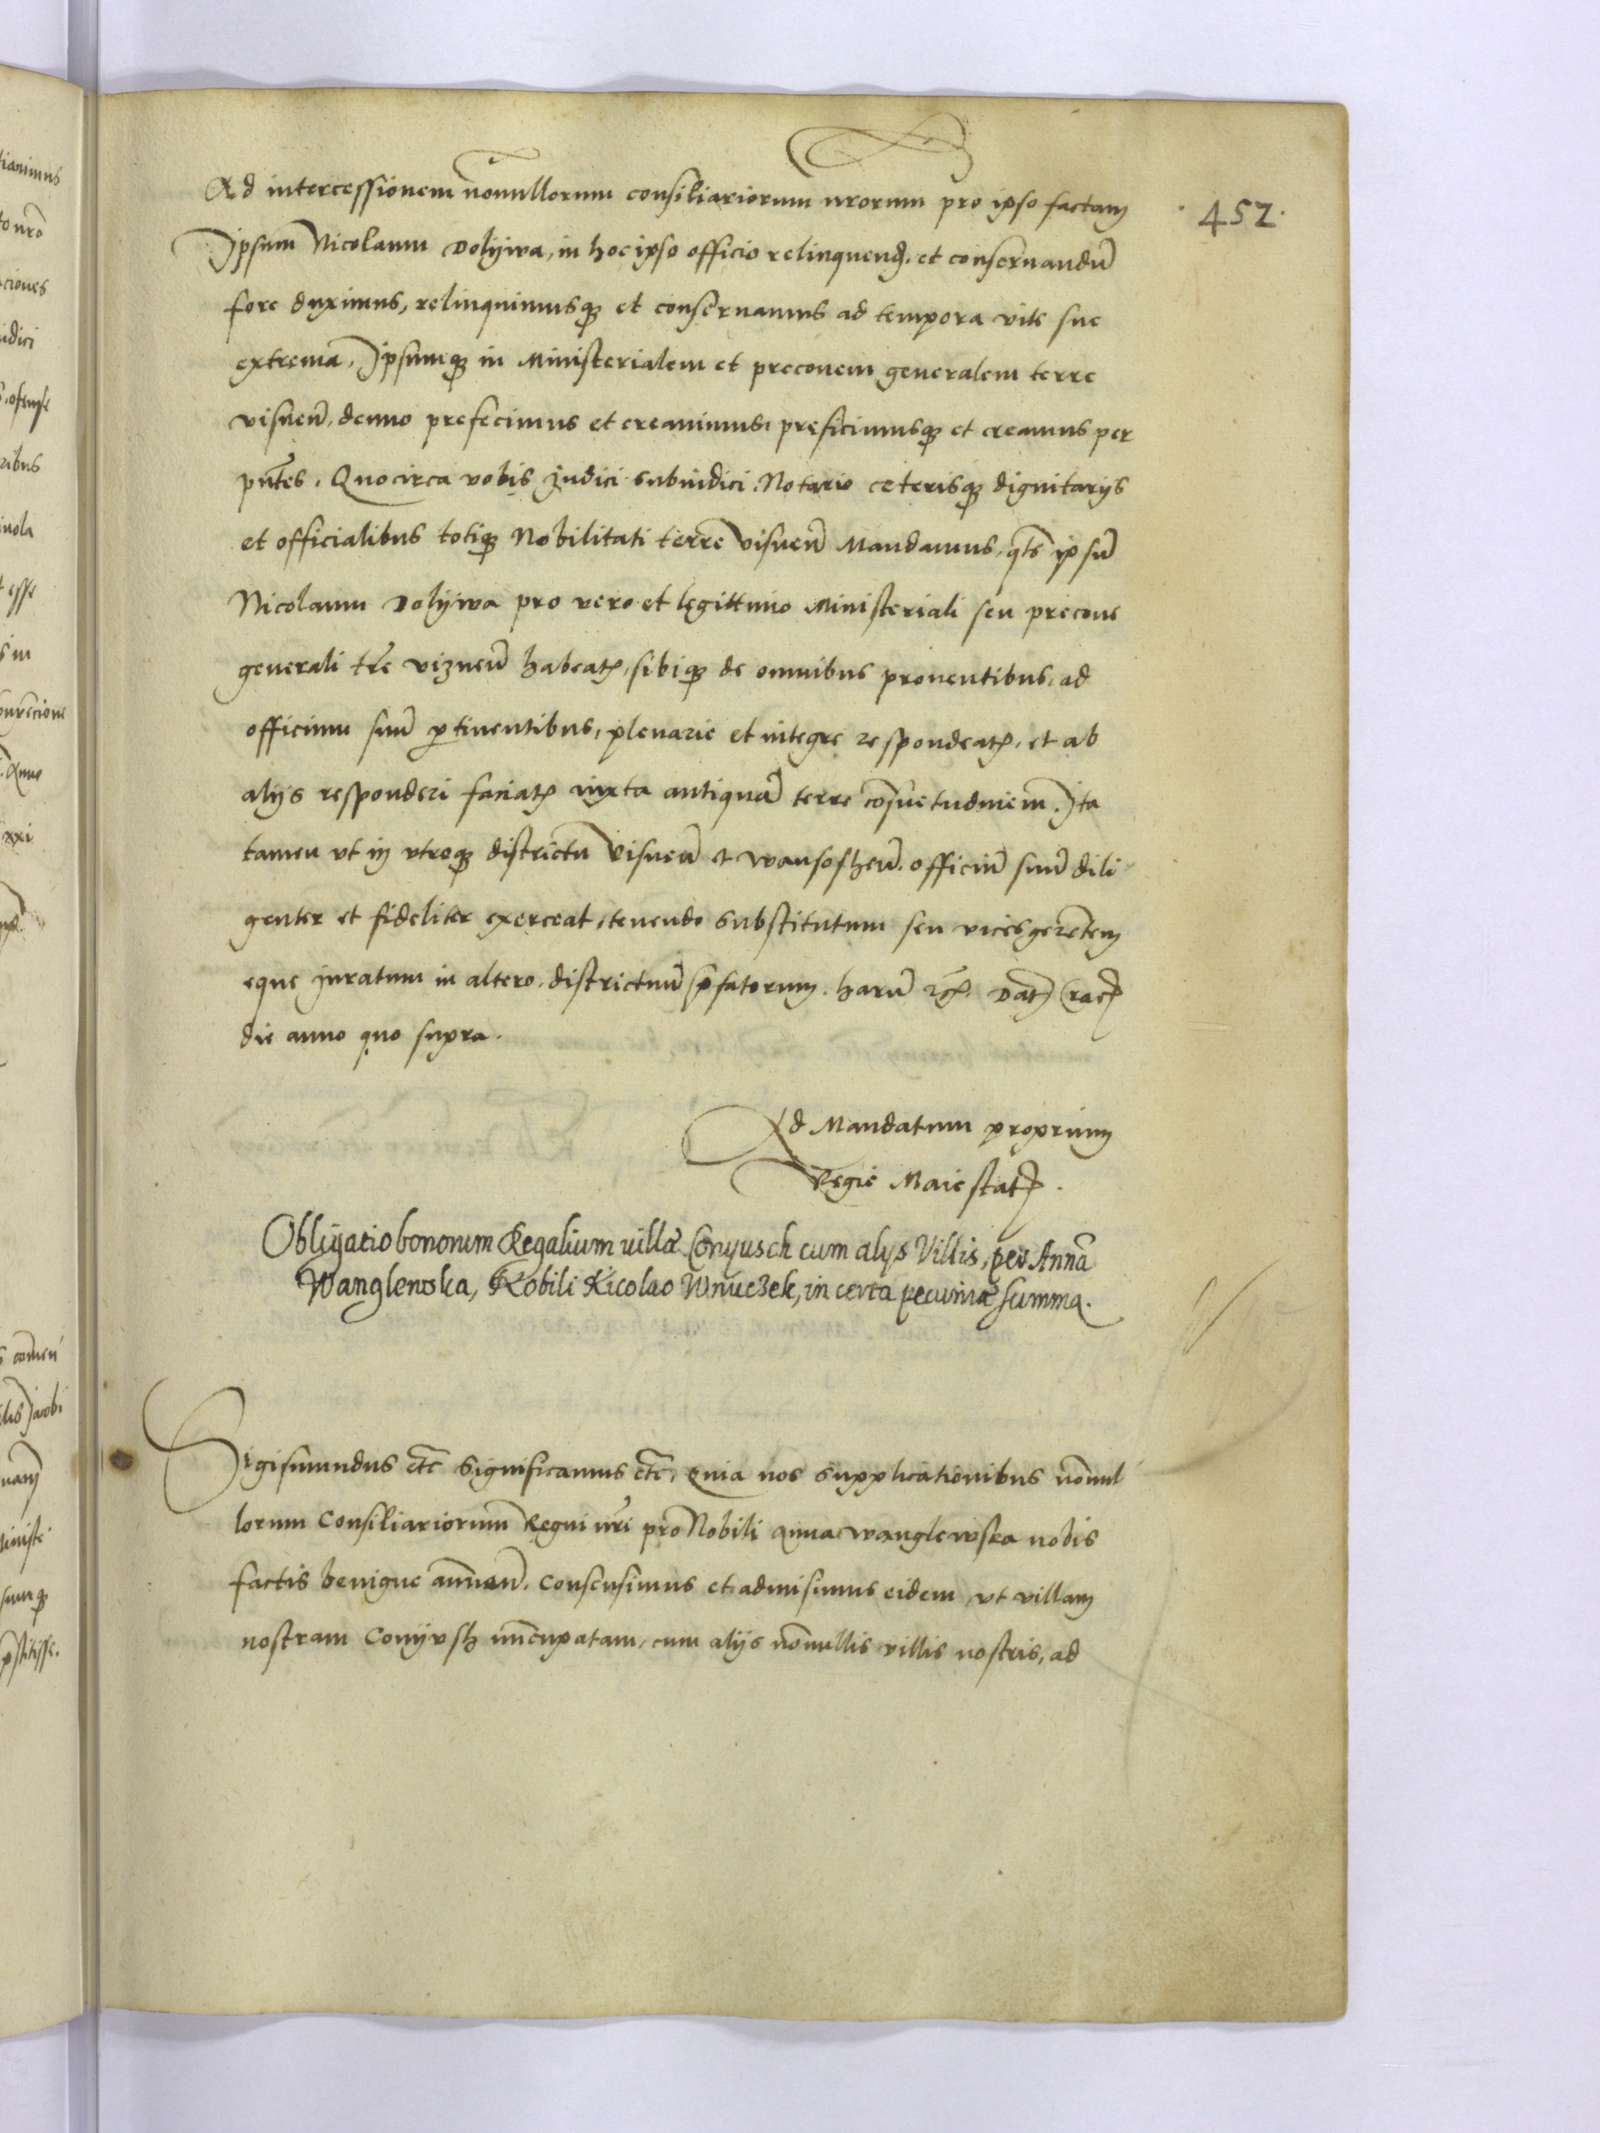 452
Ad intercessionem nōnullorum consiliariorum nrorum pro ipso factam
Ipsum Nicolaum Dolÿwa, in hoc ipso officio relinquend, et conseruandū
fore duximus, relinquimusq et conseruamus ad tempora vite sue
extrema, Ipsumq in Ministerialem et preconem generalem terre
visneñ, denuo prefecimus et creauimus, preficimusq et creamus per
pn̄tes, Quocirca vobis Judici Subiudici Notario ceterisq dignitarÿs
et officialibus totiq Nobilitati terre visneñ Mandamus, qts ipsū
Nicolaum Dolÿwa pro vero et legittimo Ministeriali seu precone
generali tre vizneñ habeatȝ, sibiq de omnibus prouentibus, ad
officium suū ptinentibus, plenarie et integre respondeatȝ, et ab
alÿs responderi faciatȝ iuxta antiquā terre cōsuetudinem, Ita
tamen vt in vtroq districtu visneñ et wansosheñ, officiū suū dili
genter et fideliter exerceat, tenendo substitutum seu vicesgerētem
eque Juratum in altero districtuū pfatorum, harū Datȝ Cracȝ
die anno quo supra.
Ad Mandatum proprium
Regie Maiestatȝ.
Obligatio bonorum Regalium villæ Conyusch cum alÿs Villis, per Annā
Wanglenska, Nobili Nicolao Wnuczek, in certa pecuniæ summa.
Sigismundus etc Significamus etc, Quia nos supplicationibus nōnul
lorum Consiliariorum Regni nri pro Nobili anna wanglewska nobis
factis benigne annueñ, Consensimus et admisimus eidem vt villam
nostram Conÿvsh nūcupatam, cum alÿs nōnullis villis nostris, ad